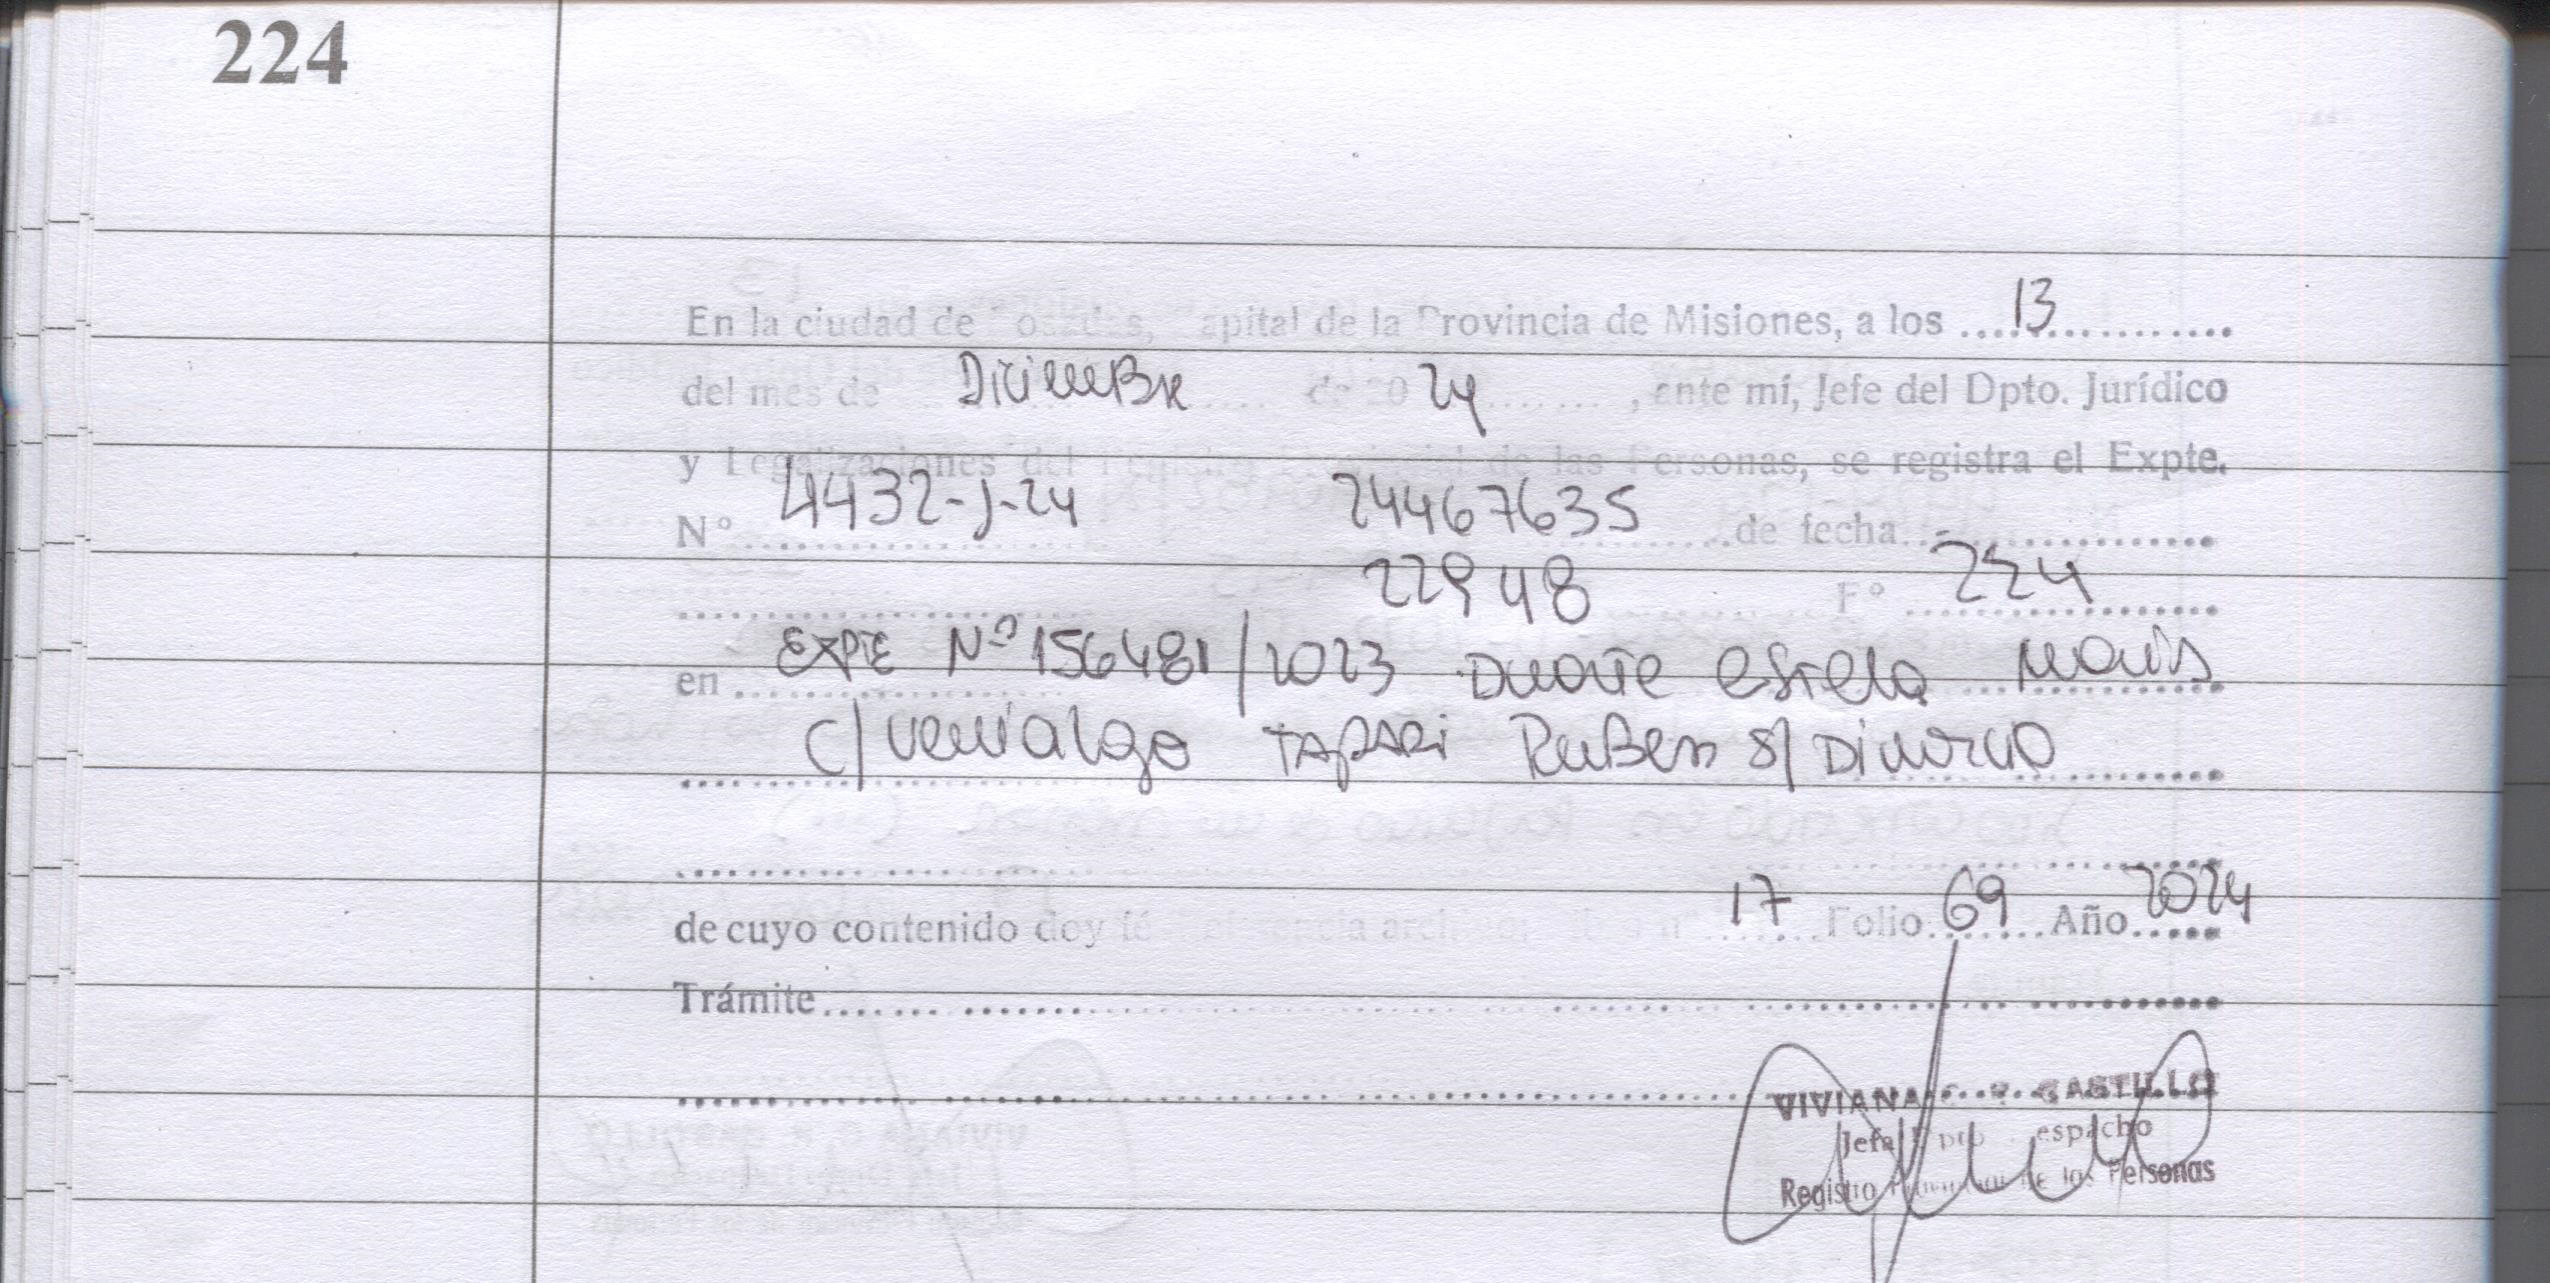 224
En la ciudad de Posadas, Capital de la Provincia de Misiones, a los ....13............
del mes de Diciembre de 20 24 ........, ante mí, Jefe del Dpto. Jurídico
y Legalizaciones del Registro Provincial de las Personas, se registra el Expte.
Nº 4432-J-24 24467635 de fecha - ............
22948 Fº 224
en EXPTE Nº 156481/2023 Duarte Estela
C/ Venialgo Tapari Ruben S/ Divorcio
de cuyo contenido doy fé 17 Folio 69 Año 2024
Trámite
VIVIANA CASTILLO
Jefa Dpto Despacho
Registro Provincial de las Personas